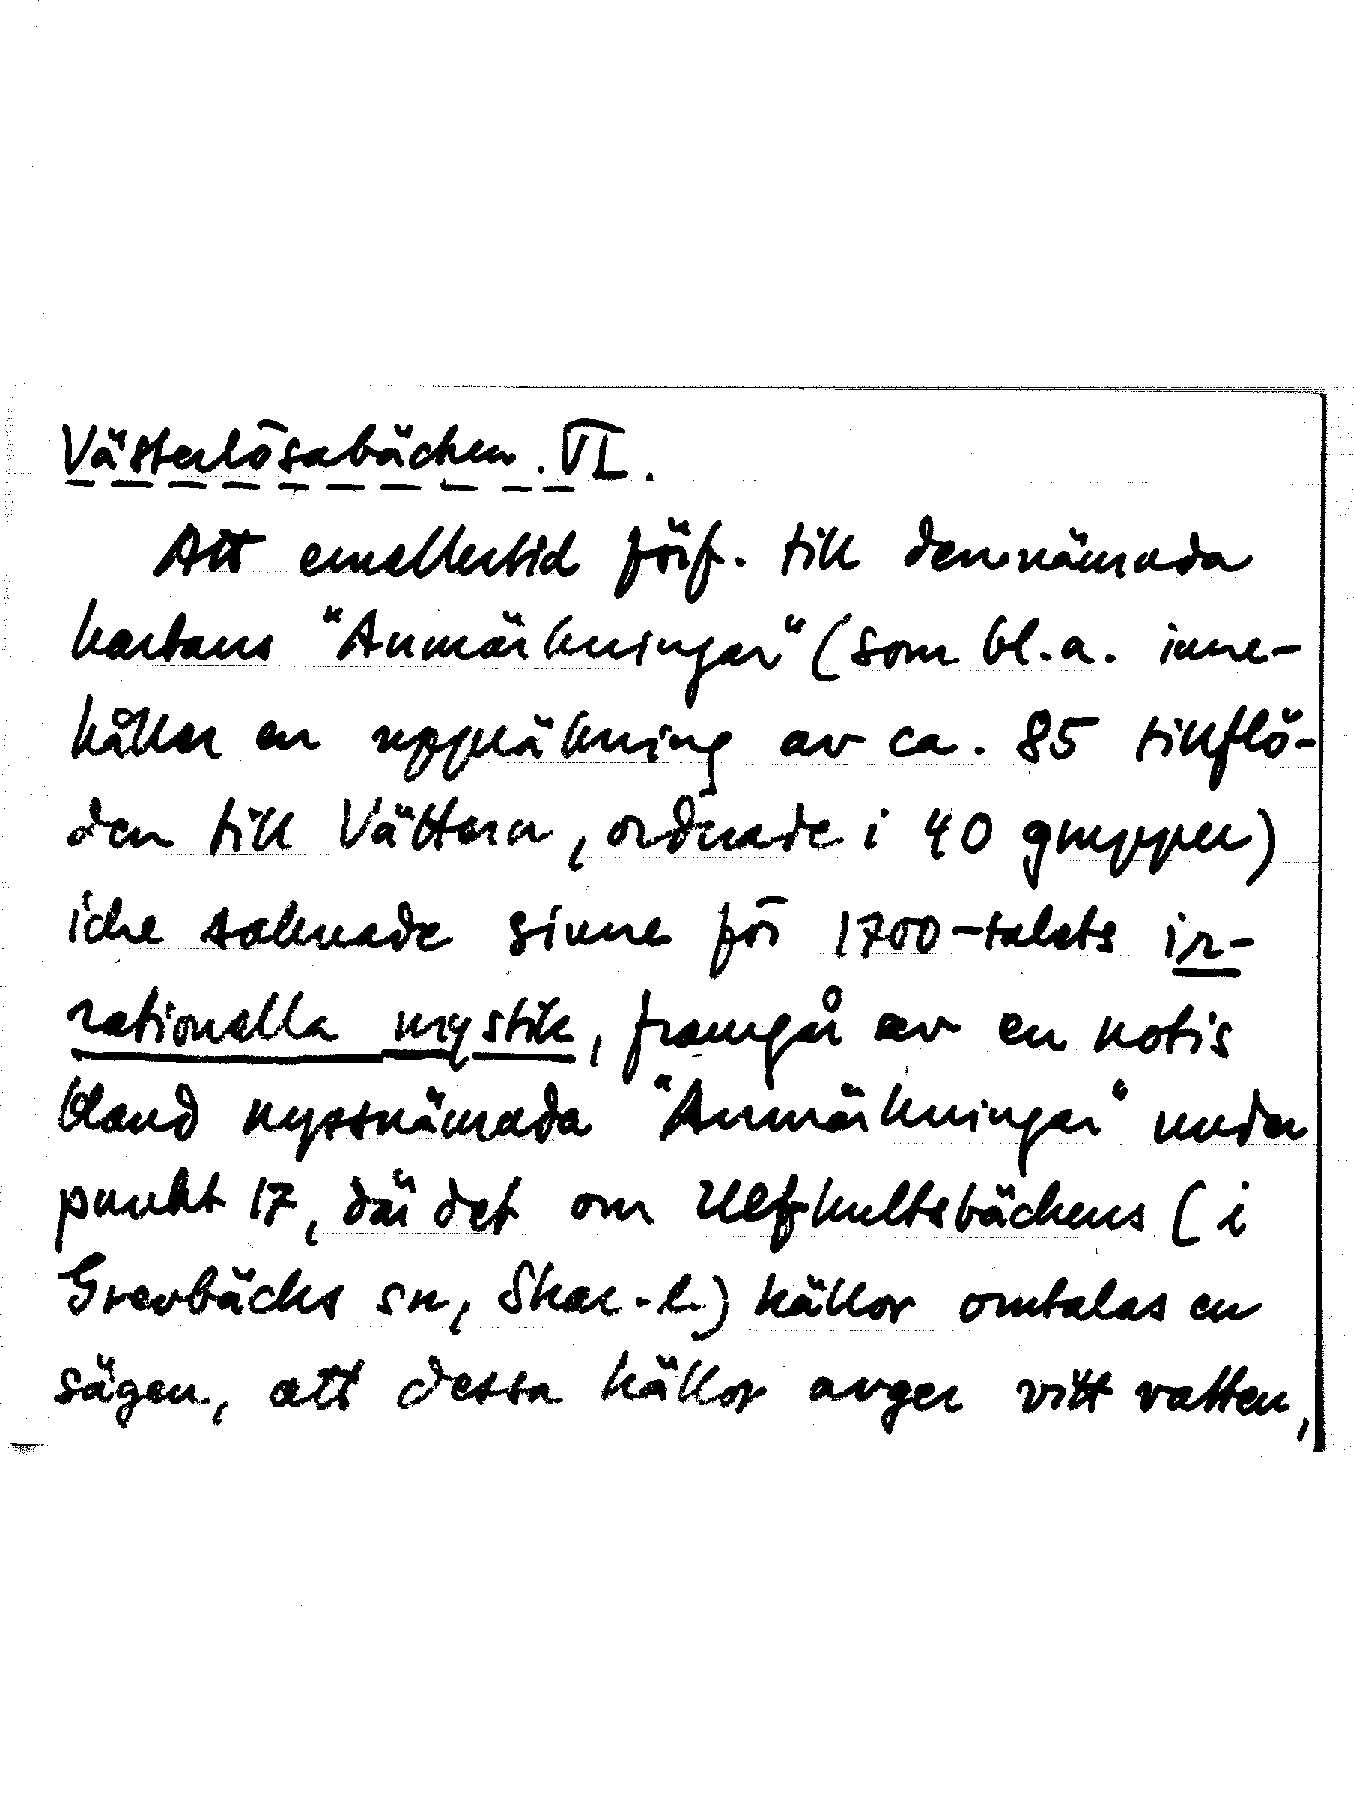 Västerlösabäcken. VI.
Att emellertid förf. till den nämnda
kartans "Anmärkningar" (som bl.a. inne-
håller en uppräkning av ca. 85 tillflö-
den till Vättern, ordnade i 40 grupper)
icke saknade sinne för 1700-talets ir-
rationella mystik, framgår av en notis
bland nyssnämnda "Anmärkningar" under
punkt 17, där det om Ulfhultsbäckens (i
Grevbäcks sn, Skar.-l.) källor omtalas en
sägen, att dessa källor avger vitt vatten,